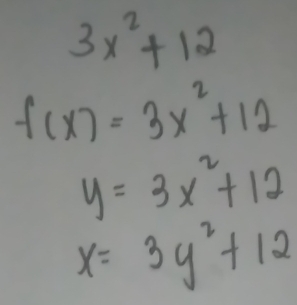 3x²+12
f(x)=3x²+12
y=3x²+12
x=3y²+12